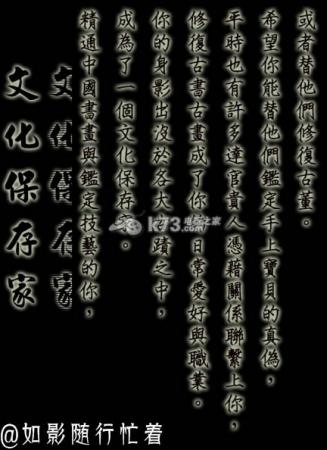 文化保存家
文化保存家
精通中國書畫與鑑定技藝的你，
成為了一個文化保存家。
你的身影出沒於各大古蹟之中，
修復古書古畫成了你的日常愛好與職業。
平時也有許多達官貴人憑藉關係聯繫上你，
希望你能替他們鑑定手上寶貝的真偽，
或者替他們修復古董。
k73 电玩之家
@如影随行忙着